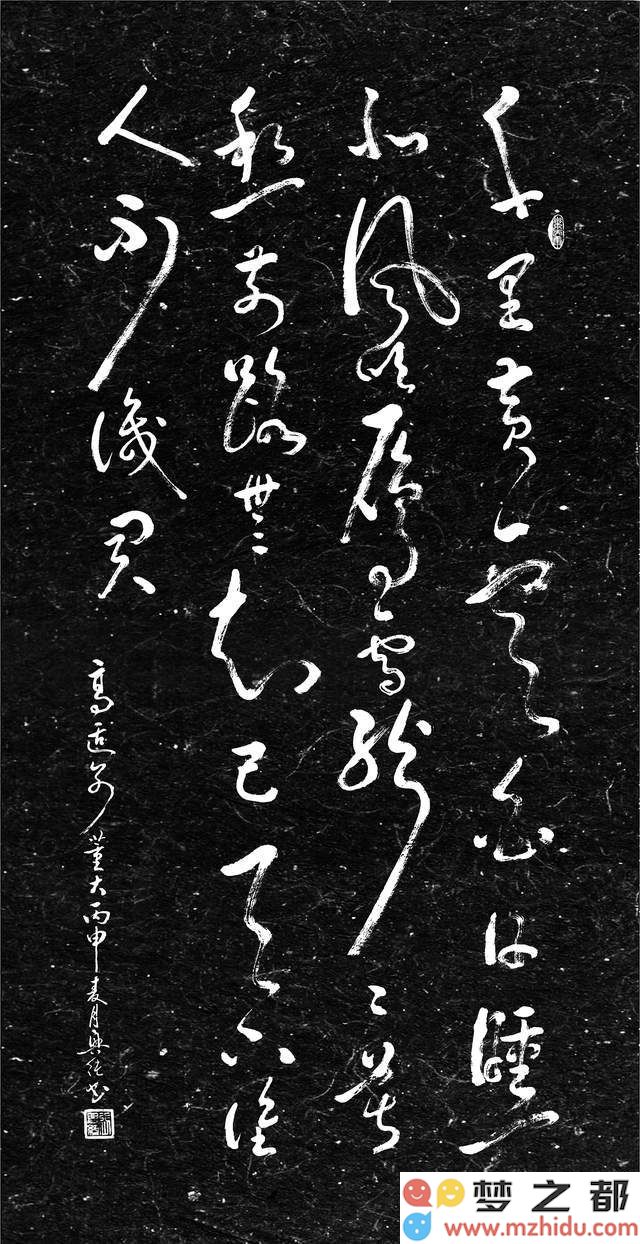 千里黄雲白日曛
北風吹雁雪紛紛莫
愁前路無知己天下誰
人不識君
高适别董大丙申麦月書
梦之都
www.mzhidu.com